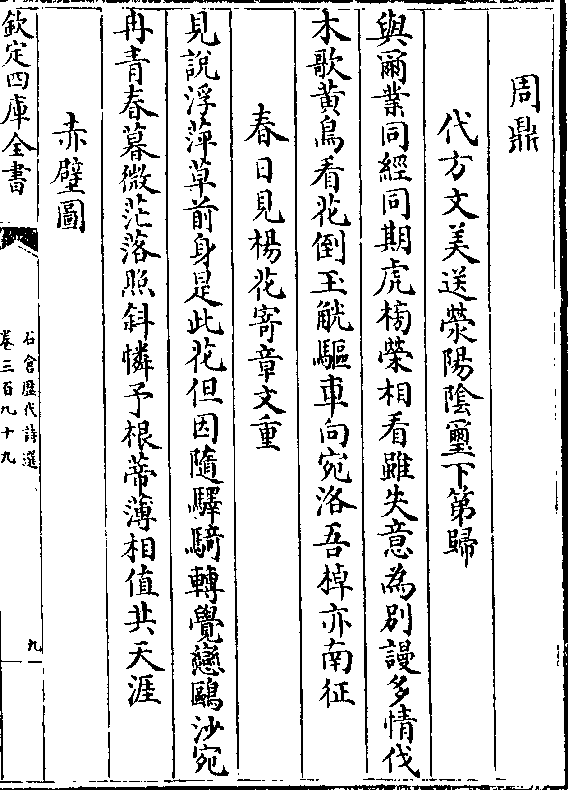 周鼎
代方文美送滎陽陰璽下第歸
與爾業同經同期虎榜榮相看雖失意為别謾多情伐
木歌黄鳥看花倒玉觥驅車向宛洛吾棹亦南征
春日見楊花寄章文重
見說浮萍草前身是此花但因隨驛騎轉覺戀鷗沙宛
冉青春暮微茫落照斜憐予根蒂薄相值共天涯
赤壁圖
欽定四庫全書
石倉歷代詩選
卷三百九十九
九